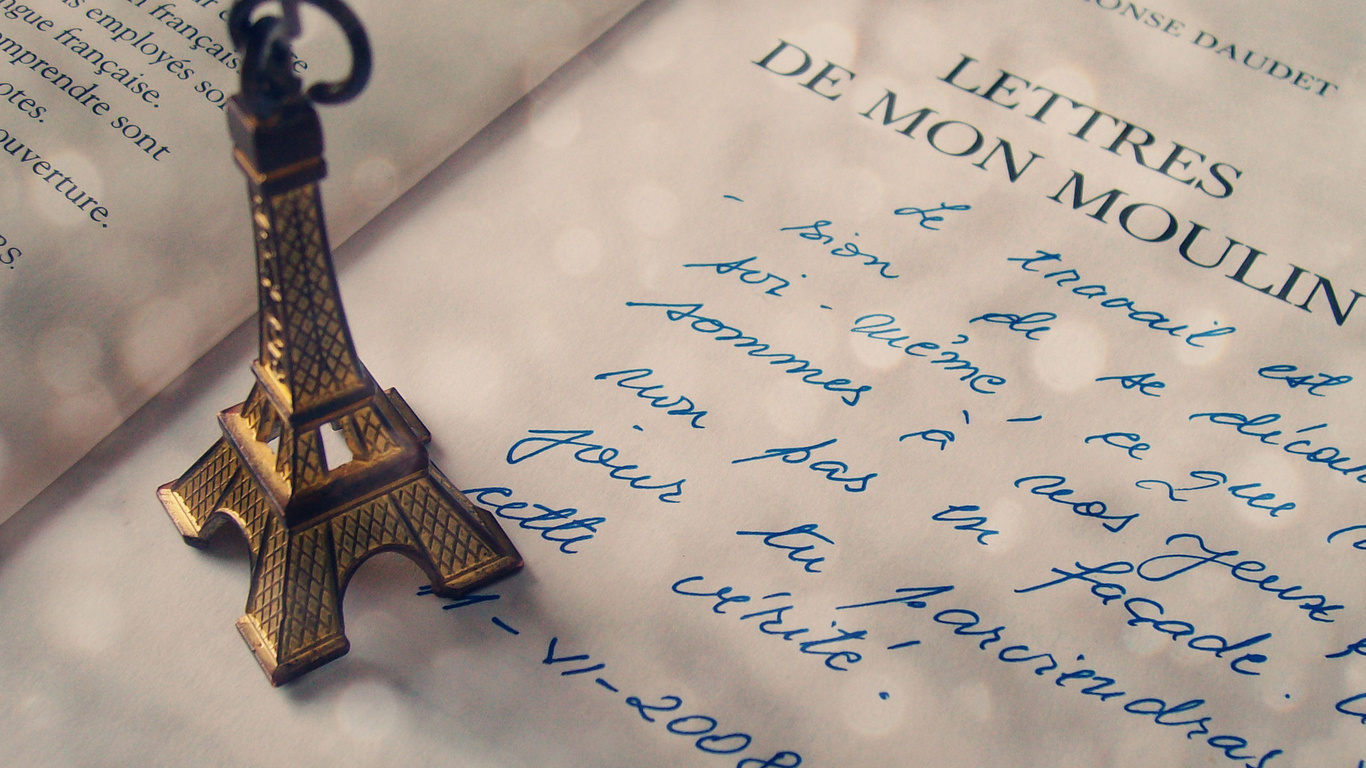 français,
employés
française.
sont
ouverture.
DAUDET
LETTRES
DE MON MOULIN
Le travail est
- sion de se décou
soi-même, ce que
sommes à nos yeux
non pas en façade.
jour tu parviendras
cette vérité.
-VI-2008